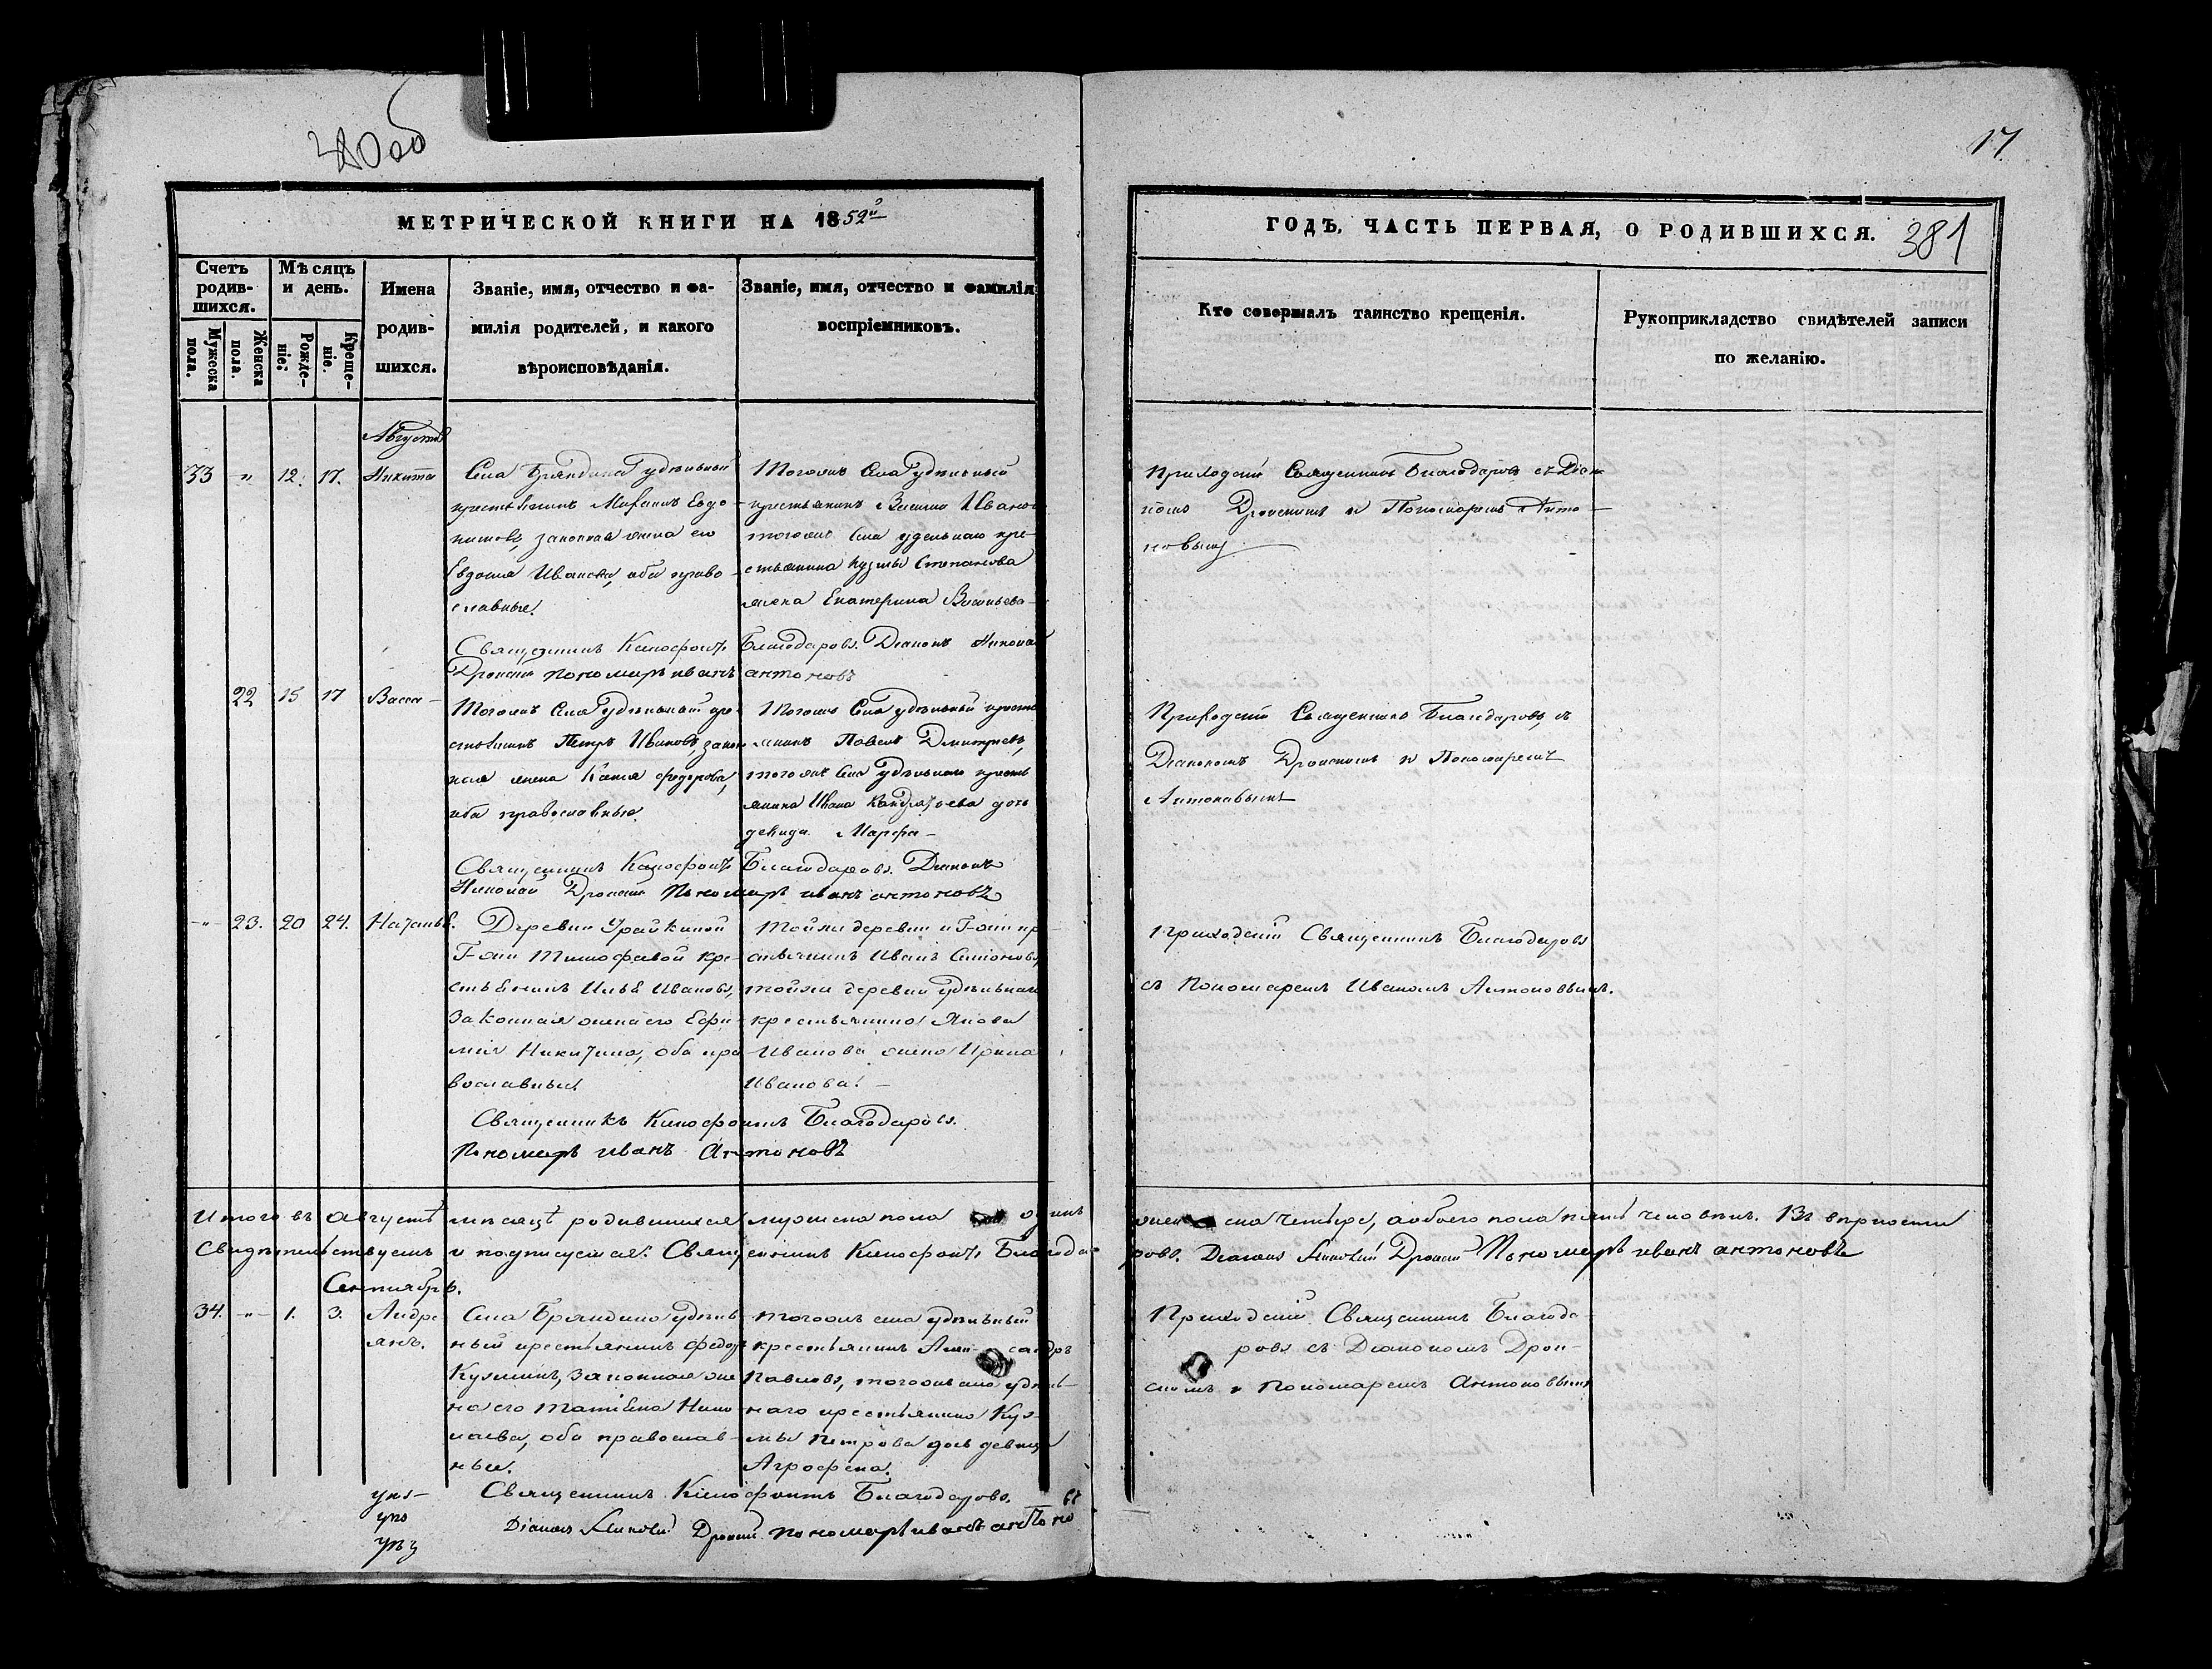 17
МЕТРИЧЕСКОЙ КНИГИ НА 1852й
ГОДЪ, ЧАСТЬ ПЕРВАЯ, О РОДИВШИХСЯ.
381
Счетъ родив-
шихся.
Мужеска пола.
Женска пола.
Мѣсяцъ и день.
Рожде-
ніе.
Креще-
ніе.
Имена
родив-
шихся.
Званіе, имя, отчество и фа-
милія родителей, и какого
вѣроисповѣданія.
Званіе, имя, отчество и фамилія
воспріемниковъ.
Кто совершалъ таинство крещенія.
Рукоприкладство свидѣтелей записи
по желанію.
Августъ
33 " 12. 17. Никита
Села Бряндина удѣльный
крестьянинъ
законная жена его
Евдокія Иванова, оба право-
славные.
Тогожъ Села удѣльный
крестьянинъ Василій Ивановъ
тогожъ Села удельнаго кре-
стьянина Кузьмы Степанова
жена Екатерина Васильева
Приходскій Священникъ Благодаровъ съ Діако
номъ Дронинымъ и Пономаремъ Анто-
новымъ
Священникъ Ксенофонтъ Благодаровъ. Діаконъ Николай
Дронинъ пономарь иванъ антоновъ
22 15 17 Васса
Тогожъ Села удѣльный кре-
стьянинъ Петръ Ивановъ, закон
ная жена Ксенія Федорова,
оба православные.
Тогожъ Села удѣльный кресть
янинъ Павелъ Дмитріевъ,
тогожъ Села удѣльнаго кресть
янина Ивана Кандратьева дочь
девица Марфа
Приходскій Священникъ Благодаровъ, съ
Діакономъ Дронинымъ и Пономаремъ
Антоновымъ
Священникъ Ксенофонтъ Благодаровъ. Діаконъ
Николай Дронинъ Пономарь иванъ антоновъ
" 23. 20 24. Наталья.
Деревни Урайкиной
Г-жи Тимофевой кре-
стьянинъ Илья Ивановъ,
законная жена его Ефи-
мія Никитина, оба пра
вославные.
Тойжи деревни и Г-жи кр-
естьянинъ Иванъ Симоновъ,
тойжи деревни удѣльнаго
крестьянина Якова
Иванова жена Ирина
Иванова.
Приходскій Священникъ Благодаровъ
съ Пономаремъ Иваномъ Антоновымъ.
Священникъ Ксенофонтъ Благодаровъ.
Пономарь иванъ Антоновъ
Итого въ Августѣ мѣсяцѣ родившихся мужеска пола одинъ
женска четыре, а обоего пола пять человѣкъ. Въ вѣрности
Свидѣтельствуемъ и подписуемся: Священникъ Ксенофонтъ Благода-
ровъ. Діаконъ Николай Дронинъ Пономарь иванъ антоновъ
Сентябрь.
34. " 1. 3. Андре
янъ.
Села Бряндина удѣль
ный крестьянинъ Федоръ
Кузминъ, законная же
на его Татіана Нико
лаева, оба православ-
ные.
Тогожъ села удѣльный
крестьянинъ Александръ
Павловъ, тогожъ села удѣль-
наго крестьянина Куз-
мы Петрова дочь девица
Агрофена.
Приходскій Священникъ Благода-
ровъ съ Діакономъ Дрон-
инымъ и Пономаремъ Антоновымъ
Священникъ Ксенофонтъ Благодаровъ.
Діаконъ Николай Дронинъ пономарь иванъ антоно
въ